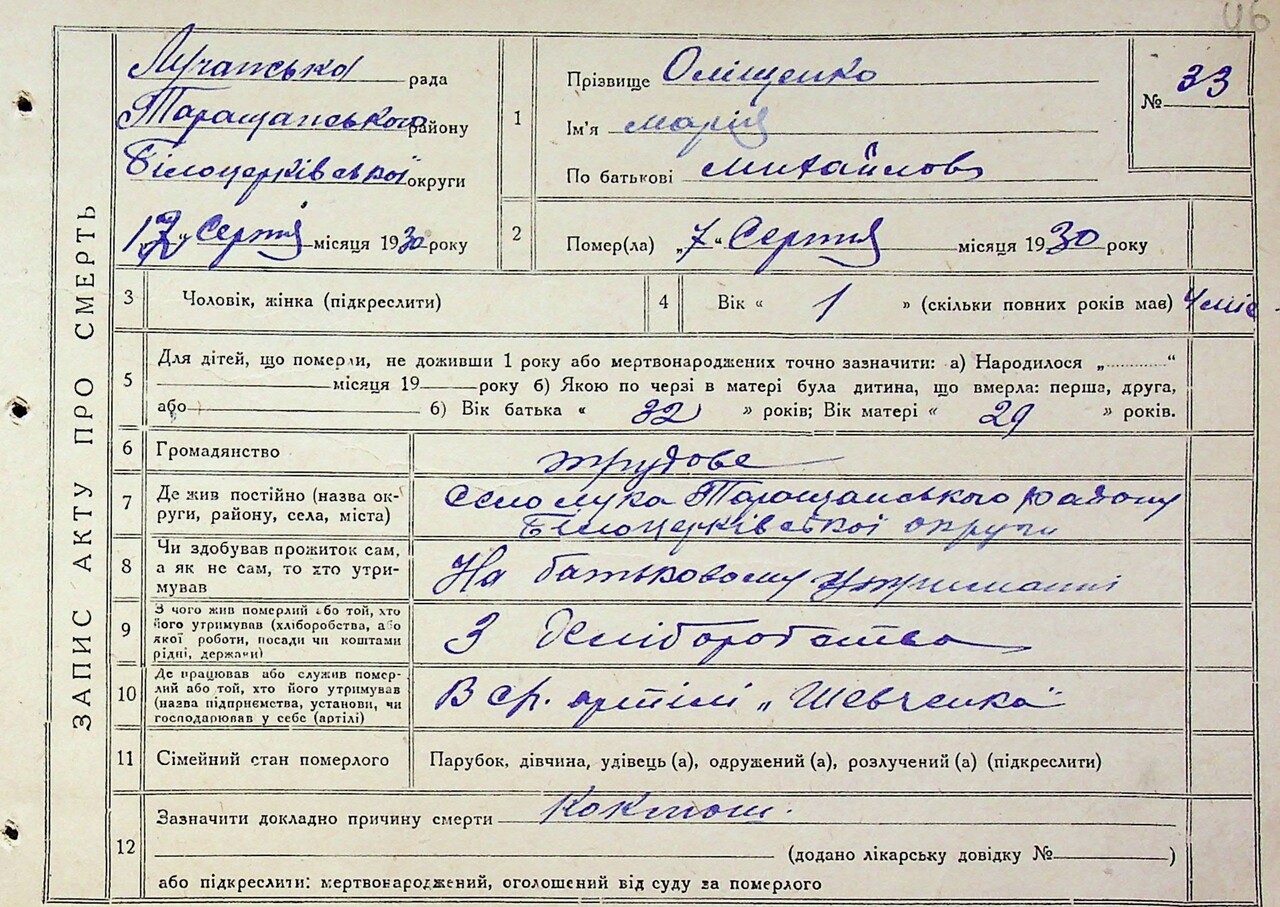 46
ЗАПИС АКТУ ПРО СМЕРТЬ
Лучанська рада
Таращанського району
Білоцерківської округи
"17" Серпня місяця 1930 року
1 Прізвище Оліщенко
Ім'я Марія
По батькові Михайлов
№ 33
2 Помер(ла) „7“ Серпня місяця 1930 року
3 Чоловік, жінка (підкреслити)
4 Вік « 1 » (скільки повних років мав) 4 міс.
5 Для дітей, що померли, не доживши 1 року або мертвонароджених точно зазначити: а) Народилося „ “
місяця 19 року б) Якою по черзі в матері була дитина, що вмерла: перша, друга,
або б) Вік батька « 32 » років; Вік матері « 29 » років.
6 Громадянство трудове
7 Де жив постійно (назва ок-
руги, району, села, міста)
село Лука Таращанського району
Білоцерківської округи
8 Чи здобував прожиток сам,
а як не сам, то хто утри-
мував
На батьковому утриманні
9 З чого жив померлий або той, хто
його утримував (хліборобства, або
якої роботи, посади чи коштами
рідні, держави)
З Хліборобства
10 Де працював або служив помер-
лий або той, хто його утримував
(назва підприємства, установи, чи
господарював у себе (артілі)
В ср. артілі „Шевченка"
11 Сімейний стан померлого
Парубок, дівчина, удівець (а), одружений (а), розлучений (а) (підкреслити)
12 Зазначити докладно причину смерти Коклюш.
(додано лікарську довідку № )
або підкреслити: мертвонароджений, оголошений від суду за померлого